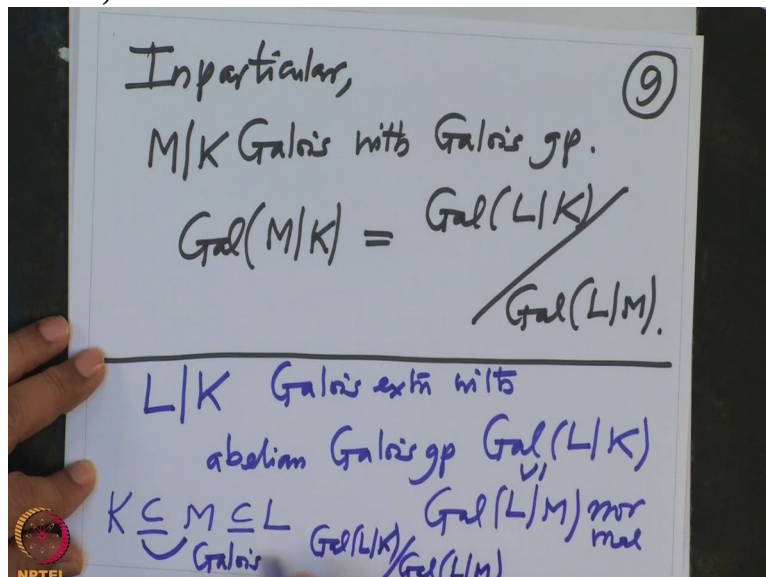 In particular,
9
M|K Galois with Galois gp.
Gal(M|K) = Gal(L|K)/Gal(L|M).
L|K Galois extn with
abelian Galois gp Gal(L|K)
∪|
K ⊆ M ⊆ L Gal(L|M) nor
mal
Galois Gal(L|K)/Gal(L|M)
NPTEL